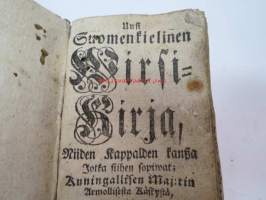 Uusi
Suomenkielinen
Wirsi-
Kirja,
Niiden Kappalden kansa
Jotka siihen sopiwat;
Kuningallisen Maj:tin
Armollisesta Käskystä,